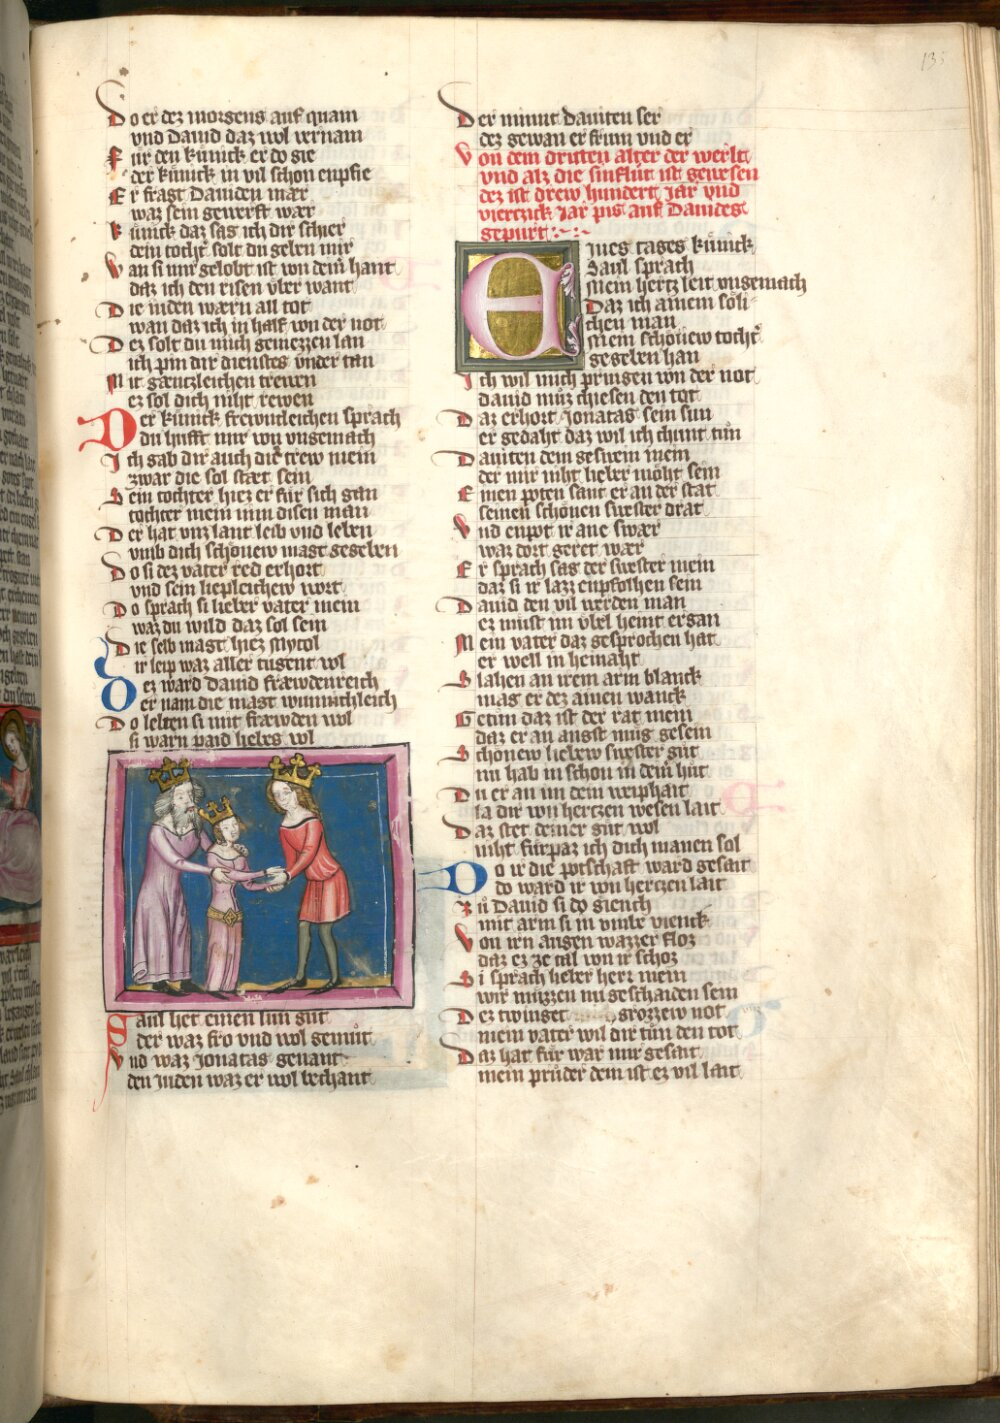 Do er dez morgens auf quam
vnd Dauid daz wol vernam
Fur den kunick er do gie
der kunick in vil schon enpfie
Er fragt Dauiden mær
waz sein gewerft wær
kunick daz sag ich dir schier
dein tochter solt du geben mir
Wan si mir gelobt ist von dein hant
daz ich den risen vber want
Die iuden wærn all tot
wan daz ich in half von der not
Dez solt du mich geniezzen lan
ich pin dir dienstes vnder tan
Mit gæntzleichen trewen
ez sol dich niht rewen
Der kunick frewntleichen sprach
du hilfft mir von vngemach
Ich gab dir auch die trew mein
zwar die sol stæt sein
Sein tochter hiez er für sich gan
tochter mein nim disen man
Der hat vnz lant leib vnd leben
vmb dich schönew magt gegeben
Do si dez vater red erhort
vnd sein liepleichew wort
Do sprach si lieber vater mein
waz du wild daz sol sein
Die selb magt hiez Mycol
ir leip waz aller tugent vol
Dez ward Dauid fræwdenreich
er nam die magt wunnichleich
Do lebten si mit fræwden wol
si warn paid liebes vol
Saul het einen sun gut
der waz fro vnd wol gemut
Vnd waz Jonatas genant
den Juden waz er wol bechant
135
Der minnt Dauiten ser
dez gewan er frum vnd er
Von dem dritten alter der werlt
vnd alz die sinflut ist gewesen
dez ist drew hundert Jar vnd
viertzick Jar piz auf Dauides
gepurt
Eines tages kunick
Saul sprach
Mein hertz leit vngemach
Daz ich ainem söli-
chen man
Mein schönew tochter
gegeben han
Ich wil mich pringen von der not
dauid muz chiesen den tot
Daz erhort Jonatas sein sun
er gedaht daz wil ich chunt tun
Dauiten dem geswein mein
der mir niht lieber möht sein
Einen poten sant er an der stat
seinen schönen swester drat
Vnd enpot ir ane swær
waz dort geret wær
Er sprach sag der swester mein
daz si ir lazz enpfolhen sein
Dauid den vil werden man
ez must im vbel heint ergan
Mein vater daz gesprochen hat
er well in heinaht
Slahen an irem arm blanck
mag er dez ainen wanck
Getun daz ist der rat mein
daz er an angst mug gesein
Schönew liebew swester gut
nu hab in schon in dein hut
Du er an im dein weiphait
la dir von hertzen wesen lait
Daz stet deiner gut wol
niht furpaz ich dich manen sol
Do ir die potschaft ward gesait
do ward ir von hertzen lait
Zu Dauid si do giench
mit arm si in vmbe vienck
Von irn augen wazzer floz
daz ez ze tal von ir schoz
Si sprach lieber herz mein
wir muzzen nu geschaiden sein
Dez twinget grozzew not
mein vater wil dir tun den tot
Daz hat für war mir gesait
mein pruder dem ist ez vil lait